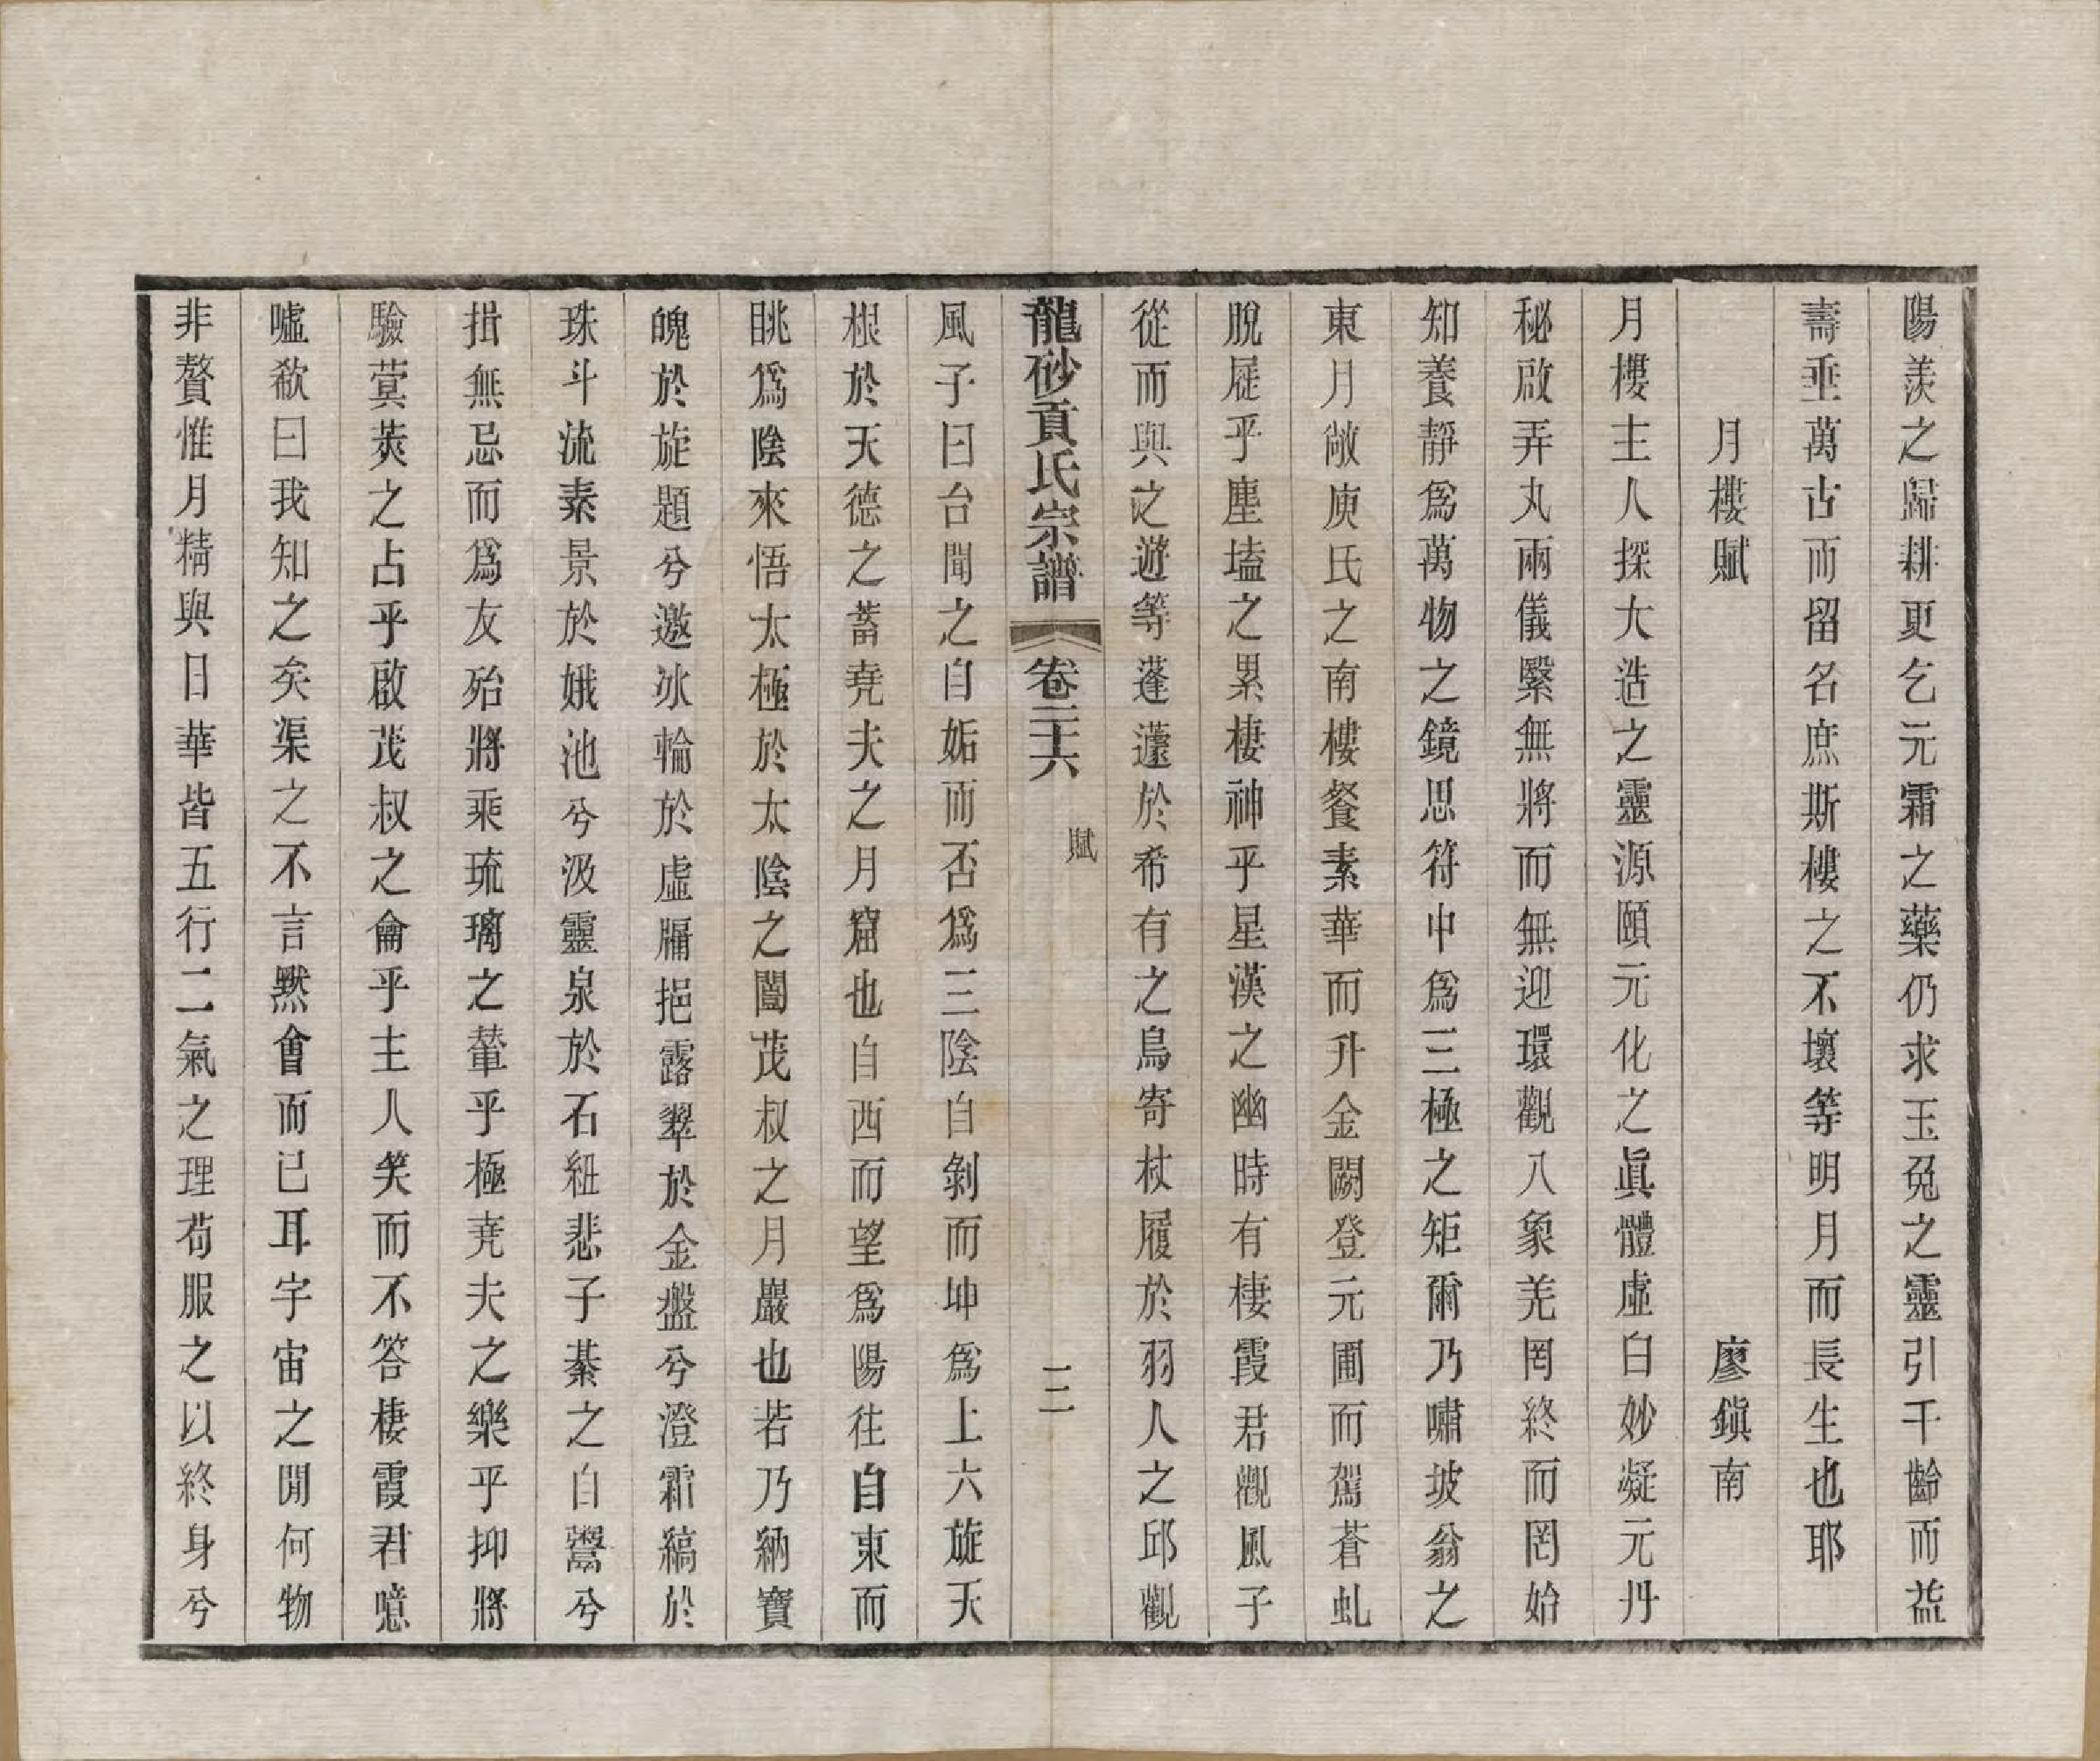 陽羨之歸耕更乞元霜之藥仍求玉兔之靈引千齡而益
壽垂萬古而留名庶斯樓之不壞等明月而長生也耶
月樓賦　廖鎮南
月樓主人探大造之靈源頤元化之眞體虛白妙凝元丹
秘啟弄丸兩儀繄無將而無迎環觀八象羌罔終而罔始
知養靜爲萬物之鏡思符中爲三極之矩爾乃嘯坡翁之
東月敞庾氏之南樓餐素華而升金闕登元圃而駕蒼虬
脫屣乎塵壒之累棲神乎星漢之幽時有棲霞君觀風子
從而與之遊等蓬蘧於希有之鳥寄杖履於羽人之邱觀
龍砂貢氏宗譜　卷二十六　賦　三
風子曰台聞之自姤而否爲三陰自剝而坤爲上六旋天
根於天德之蓄堯夫之月窟也自西而望爲陽往自東而
眺爲陰來悟太極於太陰之闔茂叔之月巖也若乃納寶
魄於旋題兮邀冰輪於虛牖挹露翠於金盤兮澄霜縞於
珠斗流素景於娥池兮汲靈泉於石紐悲子綦之自鬻兮
揖無忌而爲友殆將乘琉璃之輦乎極堯夫之樂乎抑將
驗蓂莢之占乎啟茂叔之龠乎主人笑而不答棲霞君噫
嘘欷曰我知之矣渠之不言默會而已耳宇宙之閒何物
非贅惟月精與日華皆五行二氣之理苟服之以終身兮